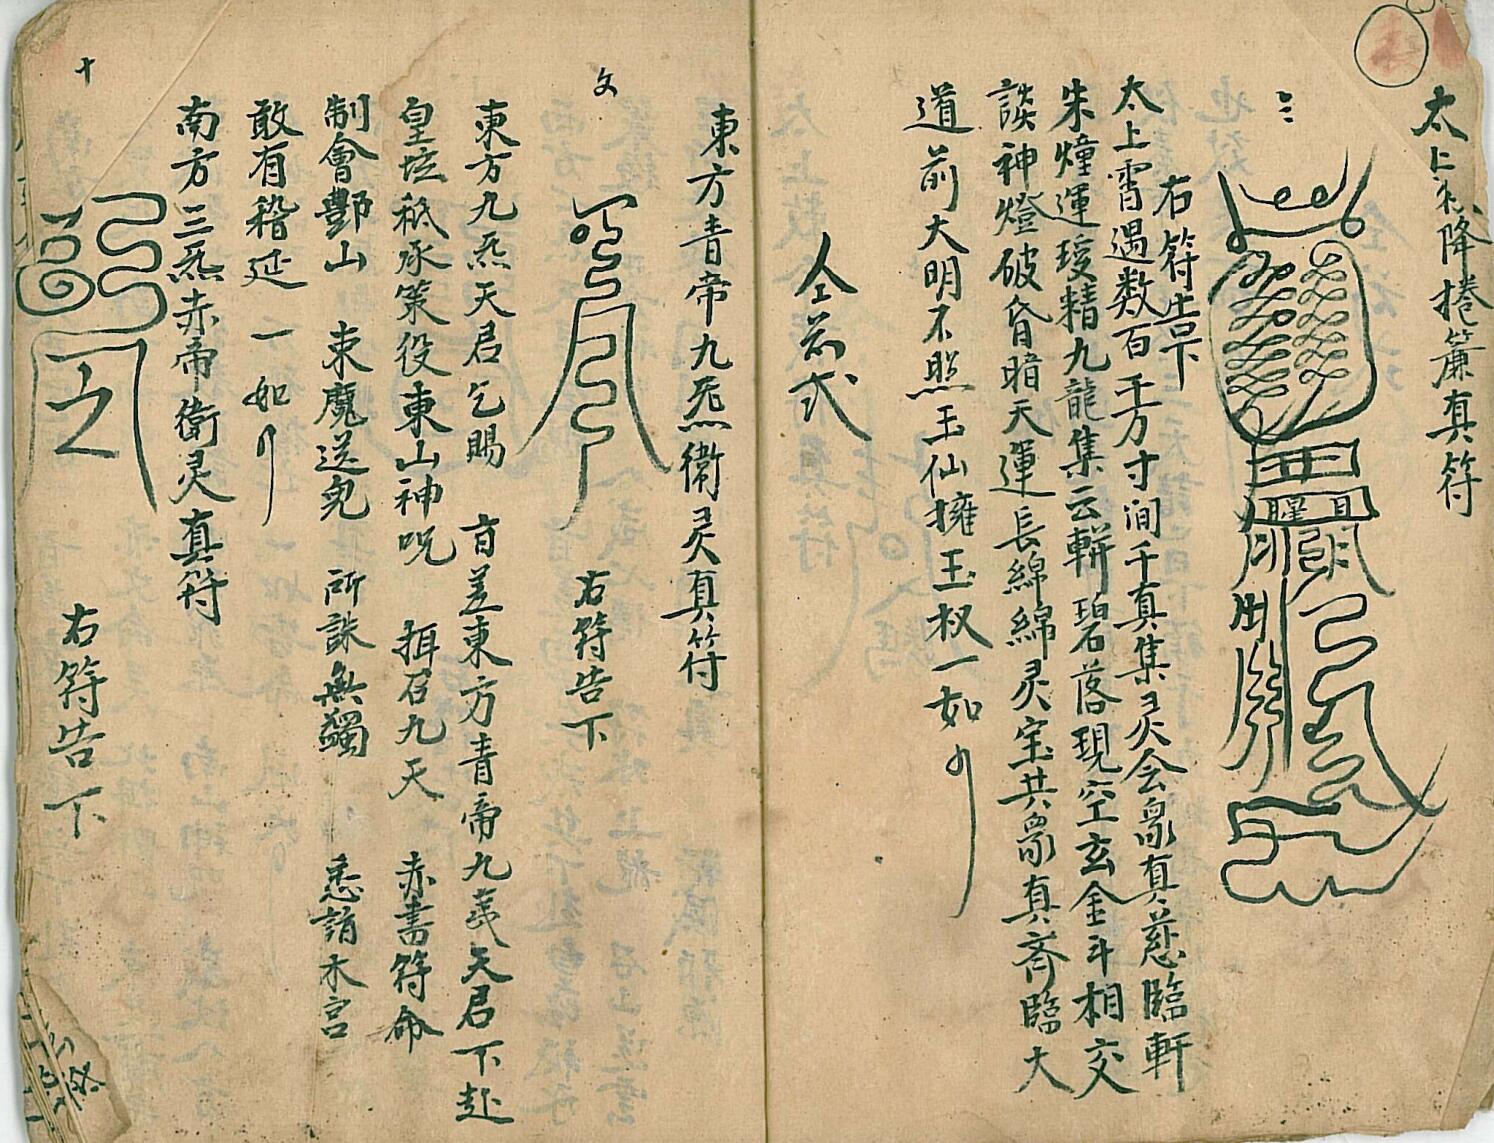 太上升降捲簾真符
三
右符告下
太上霄遇数百千万寸间千真集灵会眾真慈臨軒
朱幢運授精九龍集云軿碧落現空玄金斗相交
談神燈破昏暗天運長綿綿灵宝共眾真斉臨大
道前大明不照玉仙擁玉权一如
仝前式
文
東方青帝九炁衛灵真符
右符告下
東方九炁天君乞賜 旨差東方青帝九炁天君下赴
皇坛祗承策役東山神呪 揖召九天 赤書符命
制會酆山 束魔送鬼 所誅無蠲 悉詣木宫
敢有稽延 一如
南方三炁赤帝衛灵真符
十
右符告下